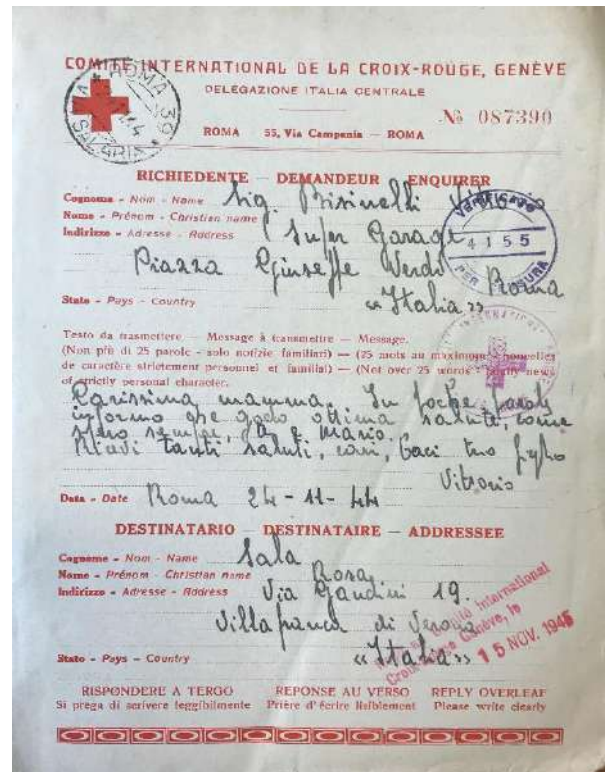 COMITÉ INTERNATIONAL DE LA CROIX-ROUGE, GENÈVE
DELEGAZIONE ITALIA CENTRALE
ROMA 39
SALARIA
№ 087390
ROMA 55, Via Campania — ROMA
RICHIEDENTE — DEMANDEUR — ENQUIRER
Cognome - Nom - Name Sig. Vittorio
Nome - Prénom - Christian name
Indirizzo - Adresse - Address Super Garage
VERIFICATO
4 1 5 5
PER CENSURA
Piazza Giuseppe Verdi Roma
Stato - Pays - Country «Italia»
Testo da trasmettere — Message à transmettre — Message.
(Non più di 25 parole - solo notizie familiari) — (25 mots au maximum, nouvelles
de caractère strictement personnel et familial) — (Not over 25 words, family news
of strictly personal character.
Carissima mamma. In poche parole
informo che godo ottima salute, come
spero sempre, e Mario.
Ricevi tanti saluti, cari, baci tuo figlio
Vittorio
Data - Date Roma 24-11-44
DESTINATARIO — DESTINATAIRE — ADDRESSEE
Cognome - Nom - Name Sala
Nome - Prénom - Christian name Rosa
Indirizzo - Adresse - Address Via Gandini 19.
Villafranca di Verona
Stato - Pays - Country «Italia»
Comité International
Croix-Rouge Genève, le
15 NOV. 1945
RISPONDERE A TERGO REPONSE AU VERSO REPLY OVERLEAF
Si prega di scrivere leggibilmente Prière d'écrire lisiblement Please write clearly